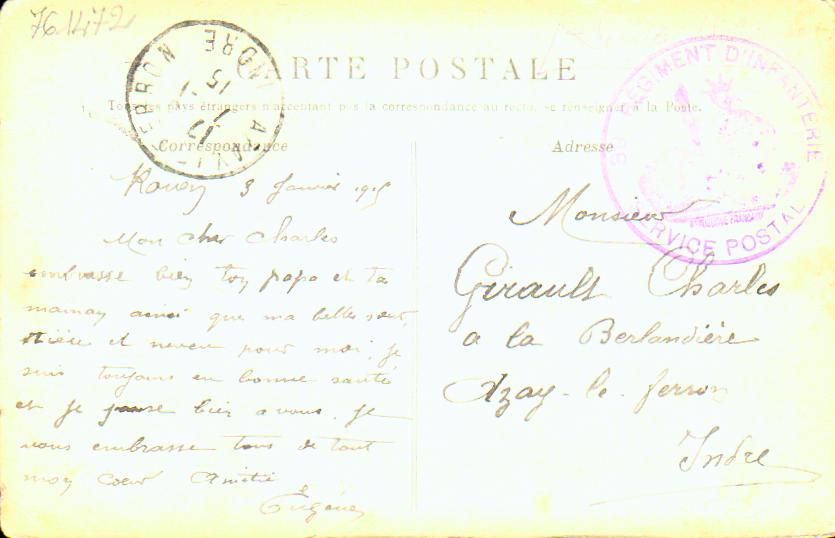 761472
CARTE POSTALE
Tous les pays étrangers n'acceptant pas la correspondance au recto, se renseigner à la Poste.
Correspondance
Adresse
AZAY-LE-FERRON
INDRE
REGIMENT D'INFANTERIE
SERVICE POSTAL
REPUBLIQUE FRANCAISE
Rouen 3 Janvier 1915
Mon cher Charles
embrasse bien ton papa et ta
maman ainsi que ma belle sœur,
nièce et neveu pour moi, je
suis toujours en bonne santé
et je pense bien a vous. je
vous embrasse tous de tout
mon cœur Amitié
Eugène
Monsieur
Girault Charles
a la Berlandière
Azay-le-ferron
Indre